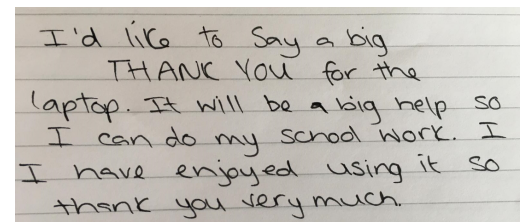 I'd like to Say a big
THANK YOU for the
laptop. It will be a big help so
I can do my school work. I
I have enjoyed using it so
thank you very much.